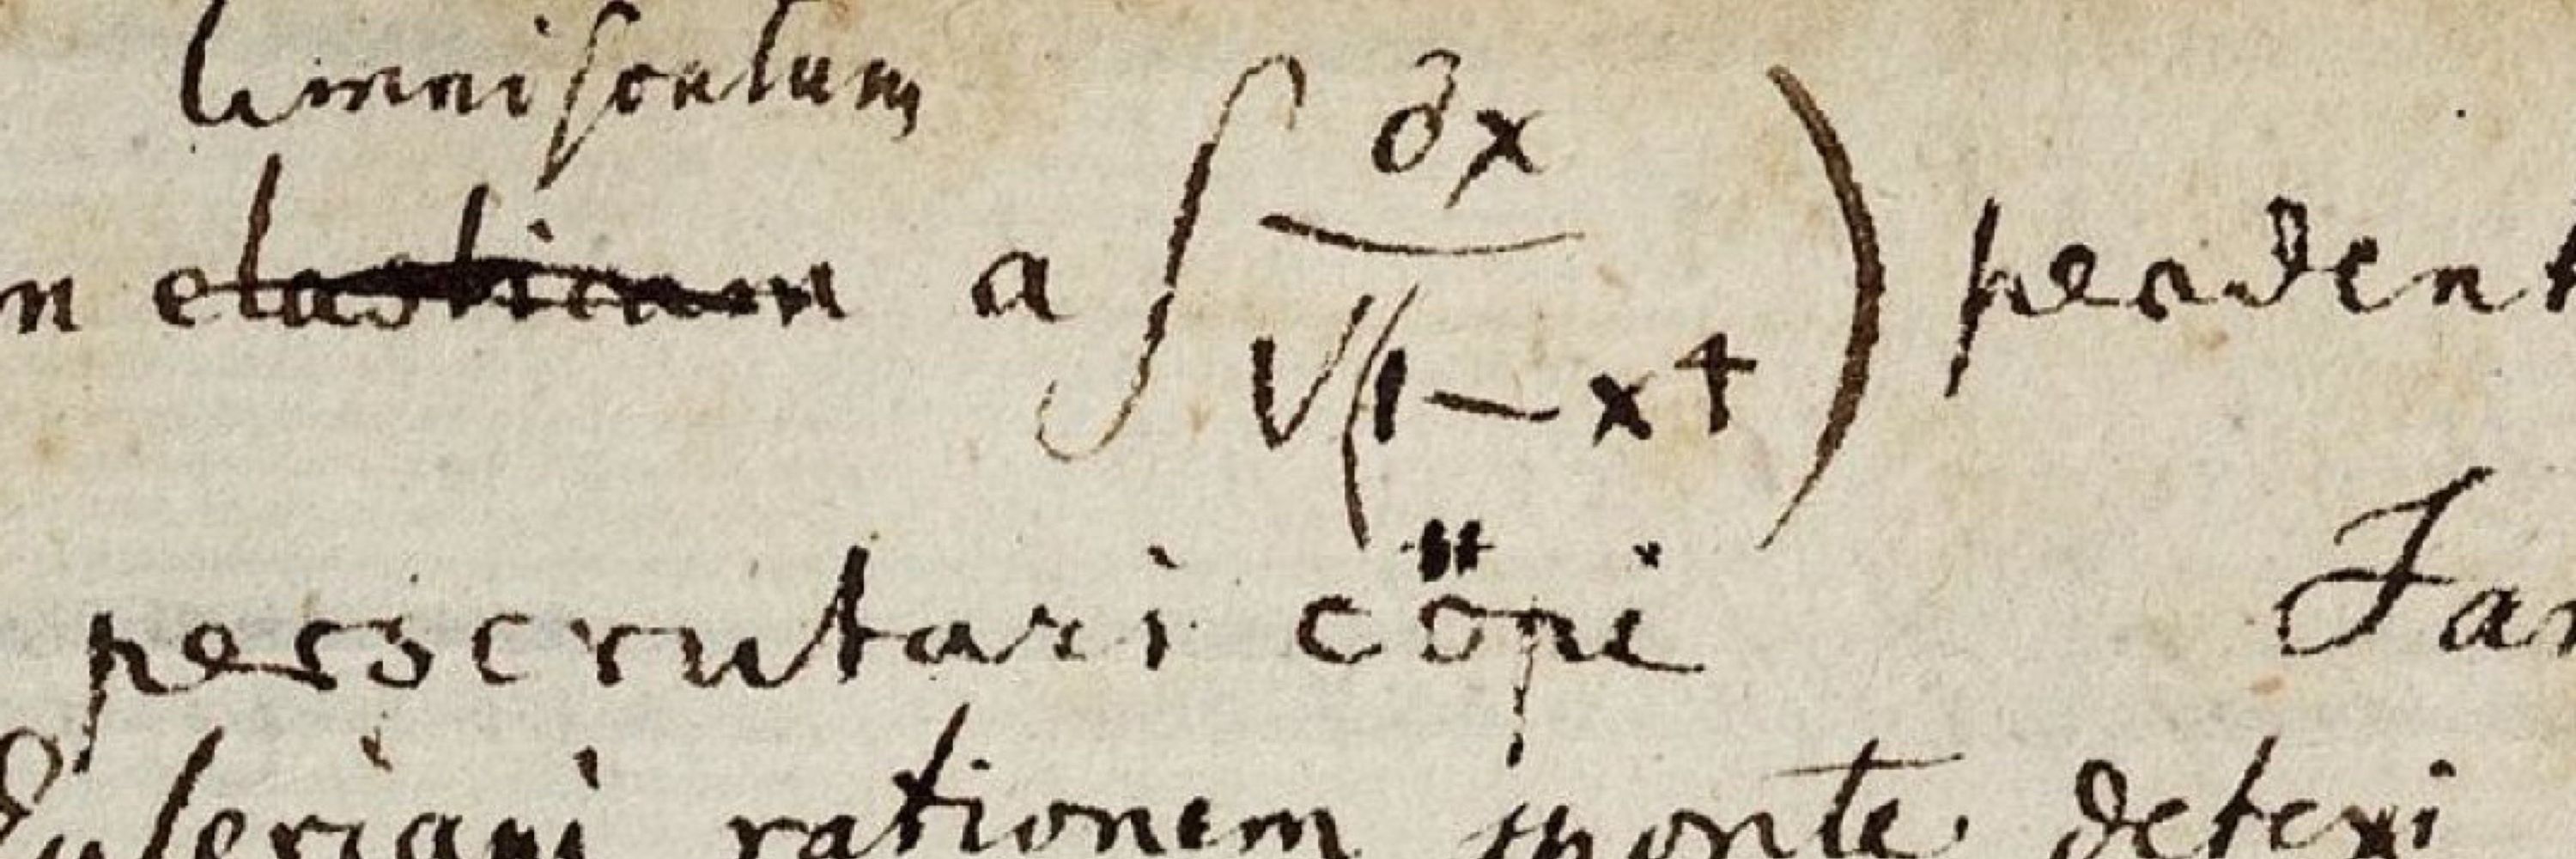 lemniscatam
n elasticam a ∫ ∂x / √(1 – x⁴) pendent
perscrutari cöpi Jam
Euleriani rationem sponte detexi